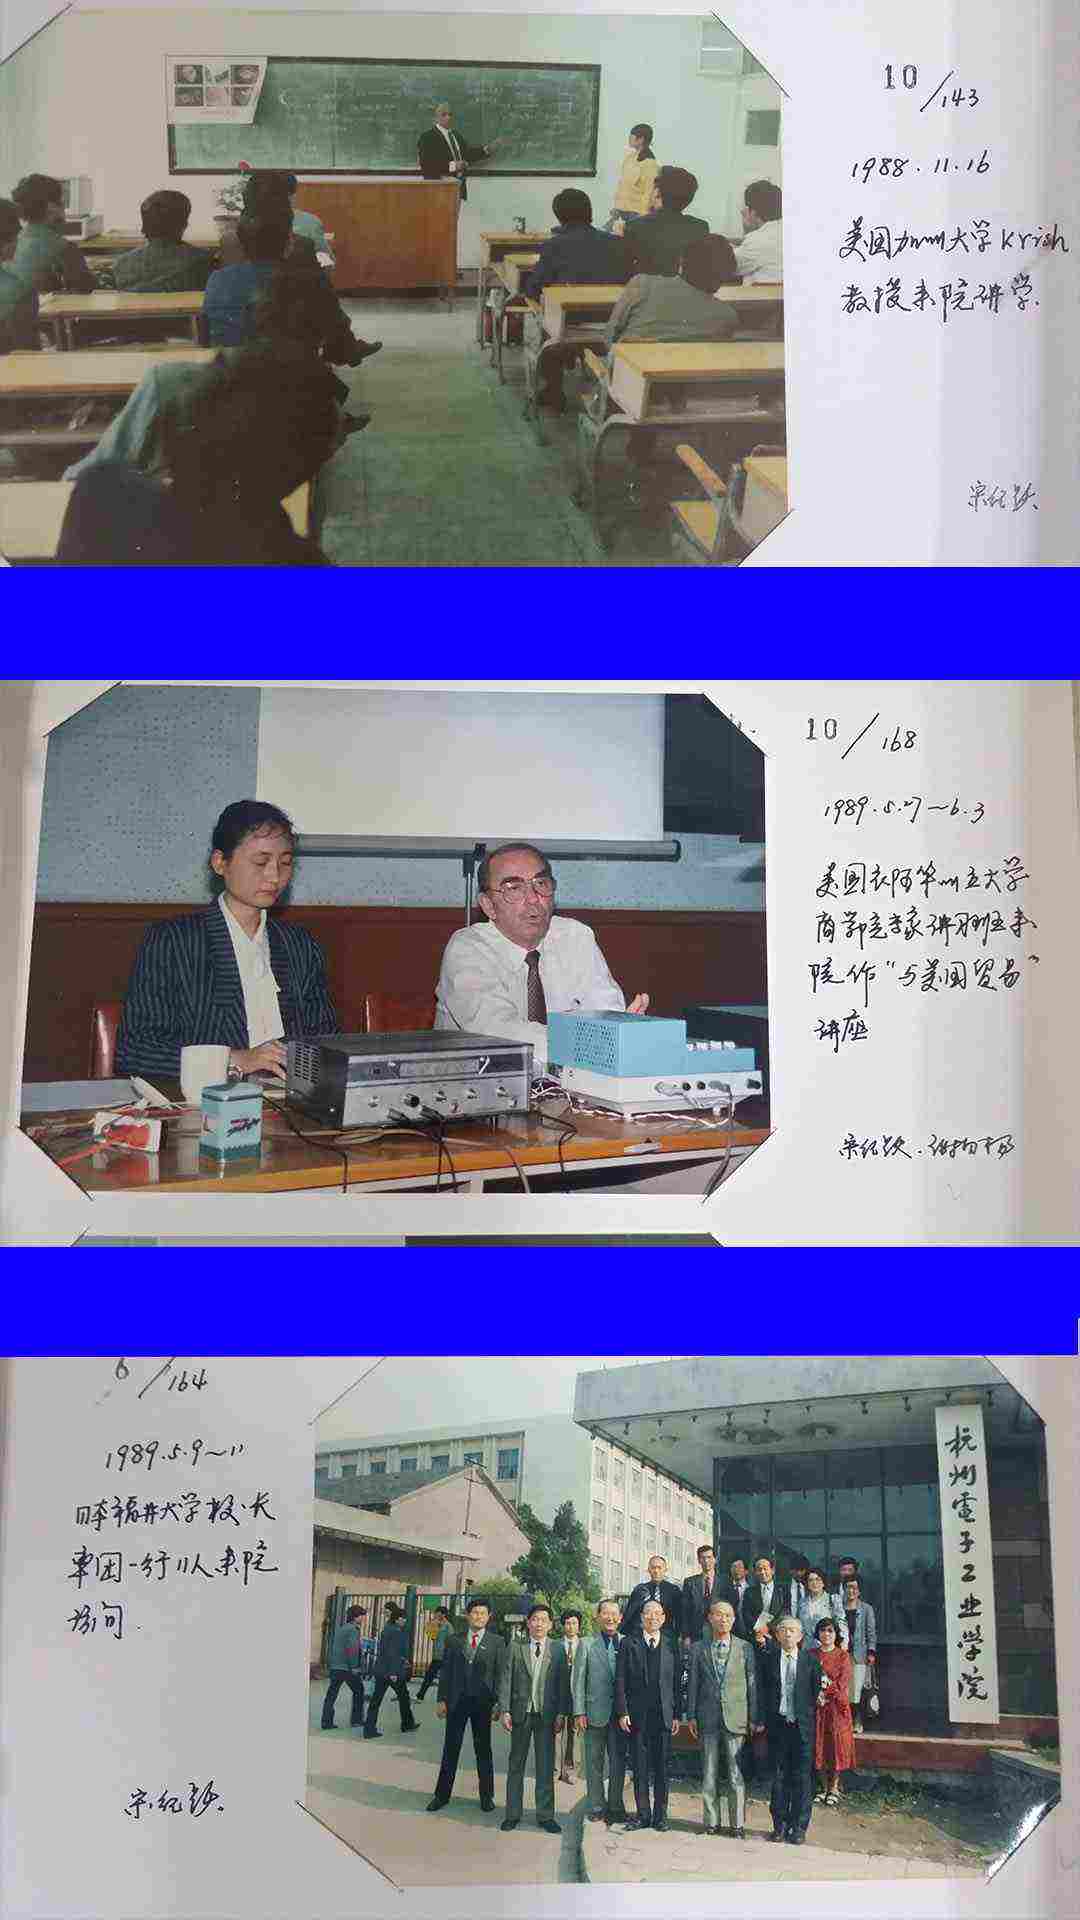 10/143
1988.11.16
美国加州大学Krish
教授来院讲学.
宋纪
10/168
1989.5.27~6.3
美国衣阿华州立大学
商学院专家讲习班来
院作“与美国贸易”
讲座
宋纪
6/164
1989.5.9~11
日本福井大学校长
率团一行11人来院
访问.
宋纪
杭州電子工业学院